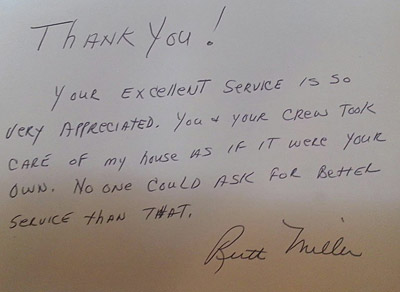 Thank You!
Your excellent service is so
very appreciated. You & your crew took
care of my house as if it were your
own. No one could ask for better
service than that.
Ruth Miller